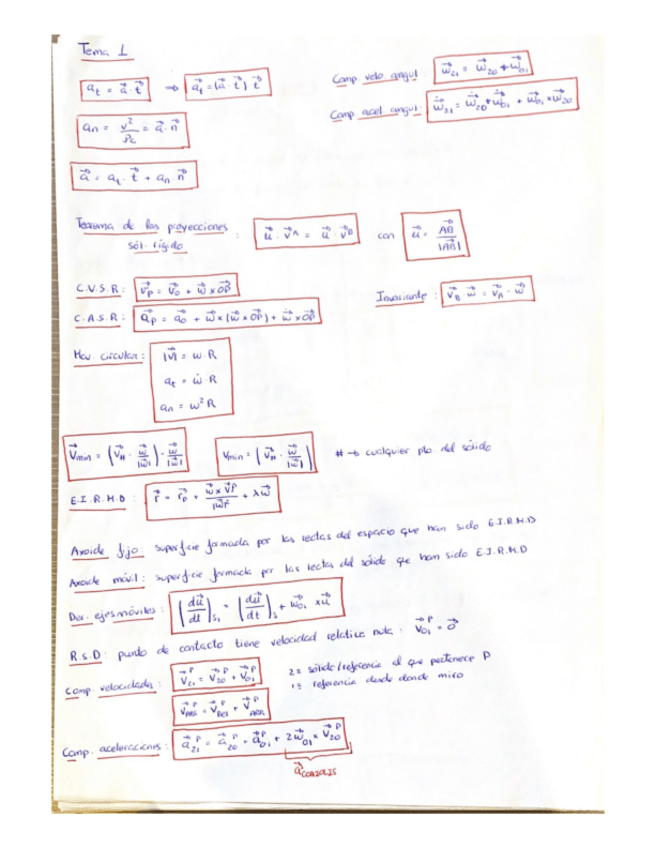 Tema 1
a_t = \vec{a} · \vec{t} ⇒ \vec{a}_t = (\vec{a} · \vec{t}) \vec{t}
Comp. velo angul: \vec{w}_{21} = \vec{w}_{20} + \vec{w}_{01}
a_n = v²/ρ_c = \vec{a} · \vec{n}
Comp. acel angul: \dot{\vec{w}}_{21} = \dot{\vec{w}}_{20} + \dot{\vec{w}}_{01} + \vec{w}_{01} × \vec{w}_{20}
\vec{a} = a_t · \vec{t} + a_n \vec{n}
Teorema de las proyecciones
sól. rígido : \vec{u} · \vec{v}^A = \vec{u} · \vec{v}^B con \vec{u} = \vec{AB}/|\vec{AB}|
C.V.S.R: \vec{v}_P = \vec{v}_0 + \vec{w} × \vec{OP}
Invariante: \vec{v}_B · \vec{w} = \vec{v}_A · \vec{w}
C.A.S.R: \vec{a}_P = \vec{a}_0 + \vec{w} × (\vec{w} × \vec{OP}) + \dot{\vec{w}} × \vec{OP}
Mov. circular: |\vec{v}| = w · R
a_t = \dot{w} · R
a_n = w² R
\vec{v}_{min} = (\vec{v}_H · \vec{w}/|\vec{w}|) · \vec{w}/|\vec{w}| v_{min} = (\vec{v}_H · \vec{w}/|\vec{w}|) H → cualquier pto. del sólido
E.I.R.M.D : \vec{r} = \vec{r}_P + \vec{w} × \vec{v}^P/|\vec{w}|² + λ\vec{w}
Axoide fijo: superficie formada por las rectas del espacio que han sido E.I.R.M.D
Axoide móvil: superficie formada por las rectas del sólido que han sido E.I.R.M.D
Der. ejes móviles: (d\vec{u}/dt)_{S_1} = (d\vec{u}/dt)_S + \vec{w}_{01} × \vec{u}
R.S.D: punto de contacto tiene velocidad relativa nula: \vec{v}_{01}^P = \vec{0}
Comp. velocidades: \vec{v}_{21}^P = \vec{v}_{20}^P + \vec{v}_{01}^P
2 = sólido/referencia al que pertenece P
1 = referencia desde donde miro
\vec{v}_{ABS}^P = \vec{v}_{REL}^P + \vec{v}_{ARR}^P
Comp. aceleraciones: \vec{a}_{21}^P = \vec{a}_{20}^P + \vec{a}_{01}^P + 2\vec{w}_{01} × \vec{v}_{20}^P
\vec{a}_{CORIOLIS}